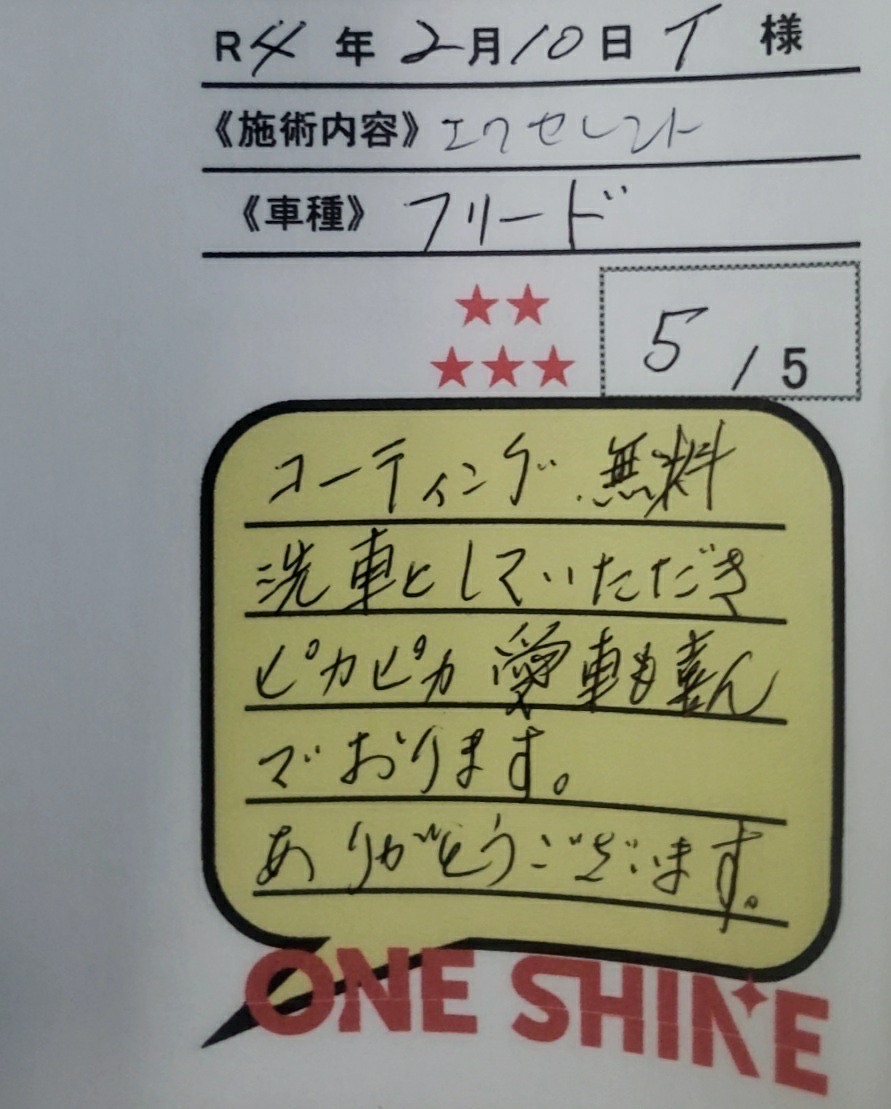 R4年2月10日T様
《施術内容》エクセレント
《車種》フリード
★★
★★★
5/5
コーティング無料
洗車としていただき
ピカピカ愛車も喜ん
でおります。
ありがとうございます。
ONE SHINE